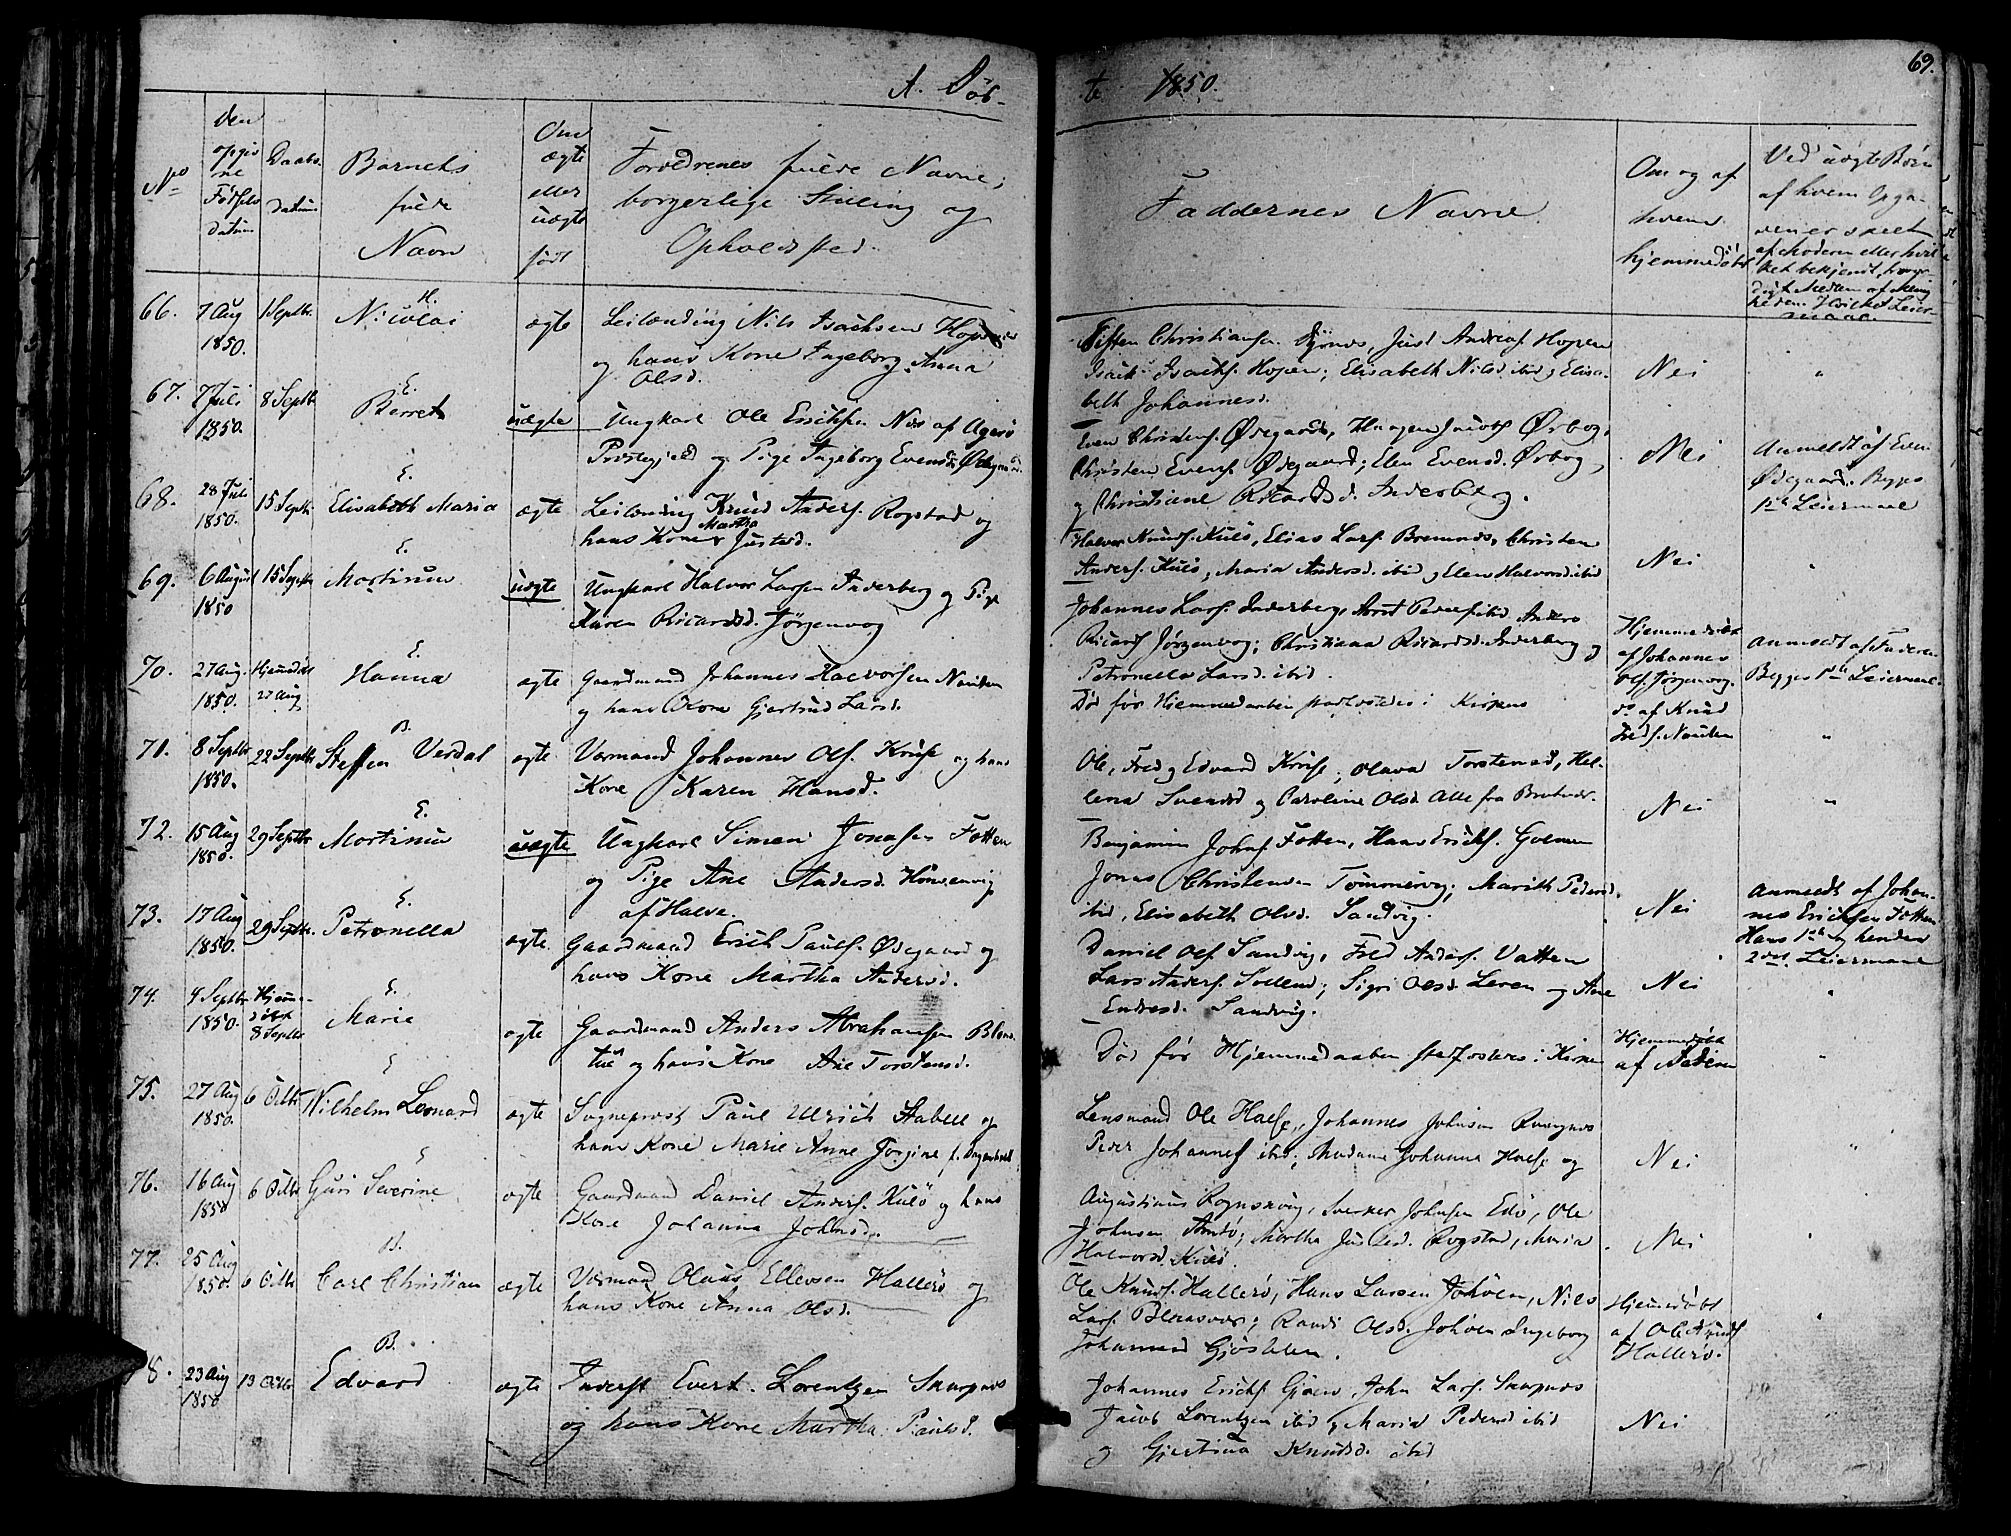 69.
A. Döb-
te 1850.
No
Den opgivne Födsels datum
Daabs datum
Barnets fulde Navn
Om ægte eller uægte født
Forældrenes fulde Navne; borgerlige Stilling og Opholdsted.
Faddernes Navne.
Om og af hvem hjemmedöbt
Ved uægte Börn af hvem Opgaven er skeet
66. 7 Aug 1850. 1 Septbr. H. Nicolai ægte
Leilænding Nils Isachsen Hopen
og hans Kone Ingeborg Anna
Olsd.
Christiansen Just Andreas. Hopen
Isach Isachs. Hopen; Elisabeth Nilsd. ibid og Elisa-
beth Johannesd.
Nei
67. 7 Juli 1850. 8 Septbr E. Berret uægte
Ungkarl Ole Erichsen Næs af Agerö
Præstegjeld og Pige Ingeborg Evensd. Ødegaard
Even Christens. Ødegaard, Haagen Jacobs. Ørbog,
Christen Evens. Ødegaard; Elen Evensd. Ørbog,
og Christiane Ricardsd. Inderberg.
Nei
Anmeldt af Even
Ødegaard. Begges
1ste Leiermaal
68. 28 Juli 1850. 15 Septbr E. Elisabeth Maria ægte
Leilænding Knud Anders. Rogstad og
hans Kone Martha Justsd.
Halvor Knuds. Kulö, Elias Lars. Bremnes, Christen
Anders. Kulö, Maria Andersd. ibid og Elen Halvorsd. ibid
Nei
69. 6 August 1850 15 Septbr E. Martinus uægte
Ungkarl Halvor Larsen Inderberg og Pige
Karen Ricardsd. Jörgenvog
Johannes Lars. Inderberg, Arnt Peders. ibid, Anders
Ricards. Jörgenvog; Christiana Ricardsd. Inderberg og
Petronella Larsd. ibid.
Hjemmedöbt
af Johannes
Ols. Jörgenvog.
Anmeldt af Faderen
Begges 1ste Leiermaal.
70. 27 Aug. 1850. Hjemmedöbt 27 Aug E. Hanna ægte
Gaardmand Johannes Halvorsen Nausten
og hans Kone Gjertrud Larsd.
Död för Hjemmedaaben stadfæstedes i Kirken
do af Knud
Freds. Nausten
71. 8 Septbr 1850. 22 Septbr B. Steffen Verdal ægte
Værmand Johannes Ols. Kruse og hans
Kone Karen Hansd.
Ole, Fred og Edvard Kruse, Olava Torstensd, Hel-
lena Svendsd og Caroline Olsd Alle fra
Nei
72. 15 Aug 1850. 29 Septbr E. Martinus uægte
Ungkarl Simen Jonasen Fætten
og Pige Ane Andersd. Hönsenvig
af Halse.
Benjamin Johns. Fætten, Hans Erichs. Golmen
Jonas Christensen Tömmervig; Marith Pedersd.
ibid, Elisabeth Olsd. Sandvig.
Nei
Anmeldt af Johan-
nes Erichsen Fætten
Hans 1ste og hendes
2det Leiermaal
73. 17 Aug 1850. 29 Septbr. E. Petronella ægte
Gaardmand Erich Pauls. Ødegaard og
hans Kone Martha Andersd.
Daniel Ols. Sandvig, Fred Anders. Vatten
Lars Anders. Sollend; Sigri Olsd Leren og Ane
Endresd. Sandvig.
Nei
74. 4 Septbr 1850. Hjemmedöbt 8 Septbr E. Marie ægte
Gaardmand Anders Abrahamsen
og hans Kone Ane Torstensd.
Död för Hjemmedaaben stadfæstedes i Kirken
Hjemmedöbt
af Faderen
75. 27 Aug 1850. 6 Octbr E Wilhelm Leonard ægte
Sogneprest Paul Ulrich Stabell og
hans Kone Marie Anne Jorgine f.
Lensmand Ole Halse, Johannes Johnsen
Peder Johannes. ibid; Madame Johanna Halse og
Nei
76. 16 Aug 1850 6 Octbr E Guri Severine ægte
Gaardmand Daniel Anders. Kulö og hans
Kone Johanna Johnsd.
Augustinus Rognskoug, Sverker Johnsen Edö, Ole
Johnsen Arntö; Martha Justsd. Rogstad, Maria
Halvorsd. Kulö.
Nei
77. 25 Aug 1850. 6 Octbr B. Carl Christian ægte
Værmand Olaus Ellevsen Hallerö og
hans Kone Anna Olsd.
Ole Knuds. Hallerö, Hans Larsen Johöen, Nils
Lars. Blaasvær; Randi Olsd. Johöen Ingeborg
Johannesd Gjöslien.
Hjemmedöbt
af Ole Knuds.
Hallerö.
78. 23 Aug 1850 13 Octbr B. Edvard ægte
Inderst Evert Lorentzen Skarpnes
og hans Kone Martha Paulsd.
Johannes Erichs. Gjöen, John Lars. Skarpnes
Jacob Lorentzen ibid, Maria Pedersd ibid
og Gjertina Knudsd. ibid
Nei